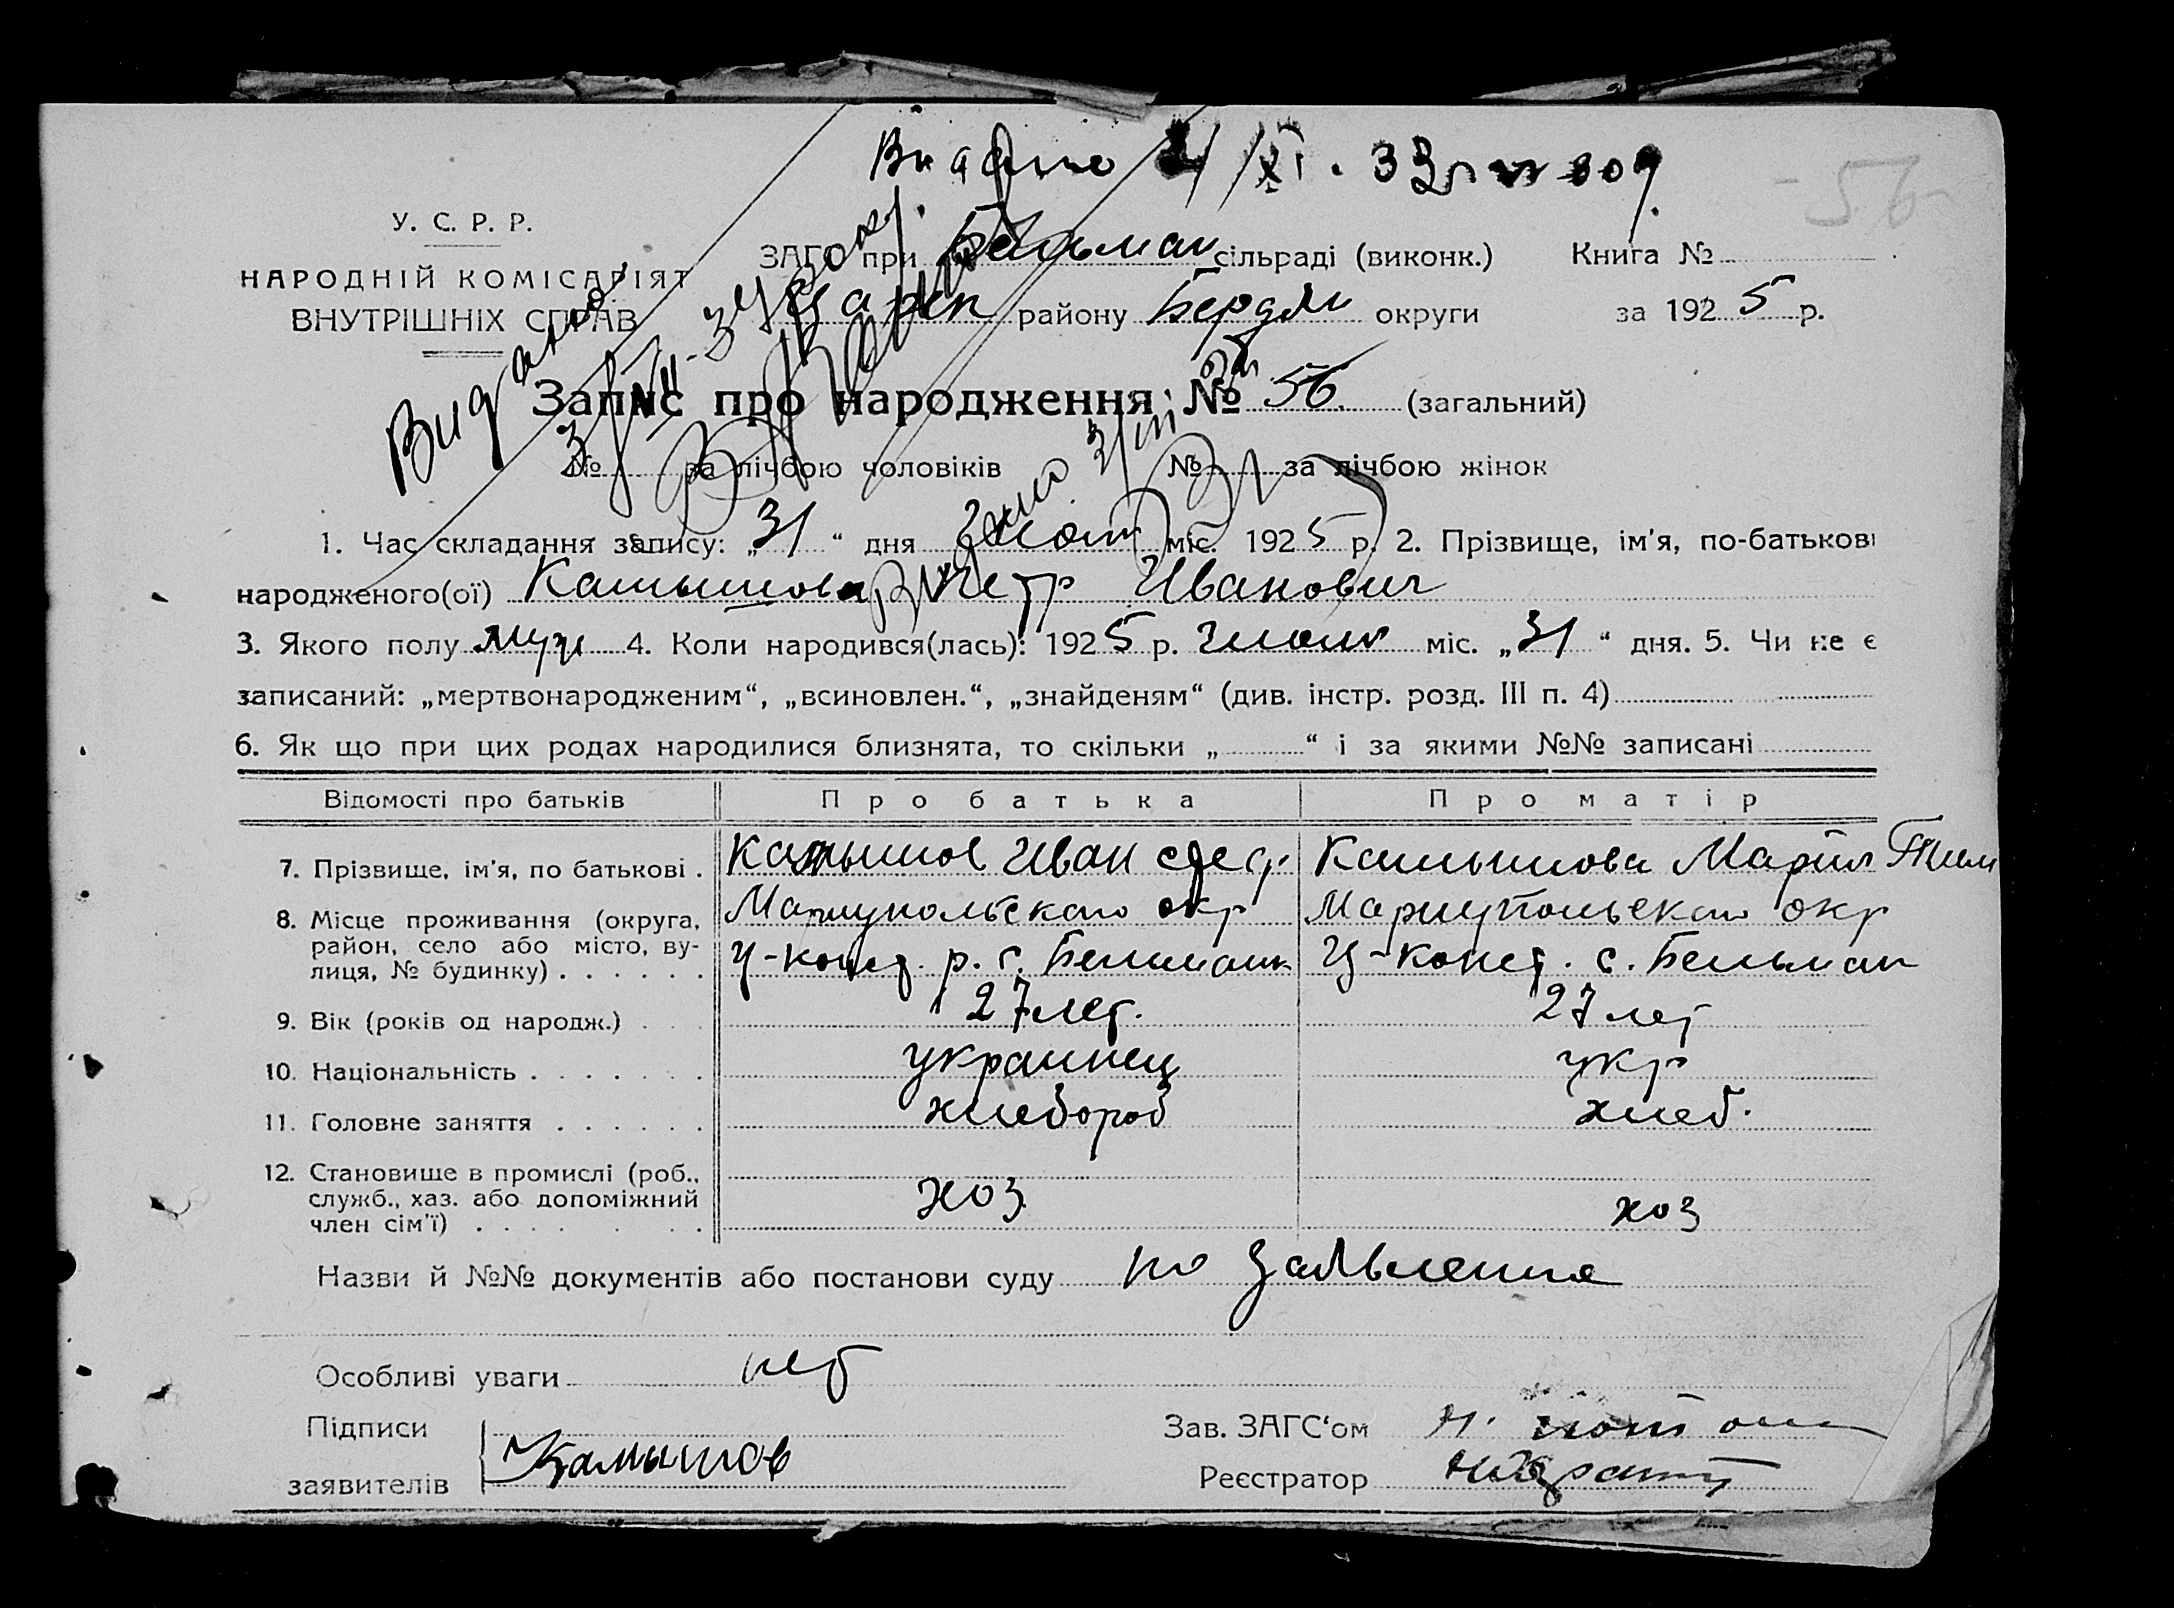 Видано XI. 33
56
У. С. Р. Р.
НАРОДНІЙ КОМІСАРІЯТ
ВНУТРІШНІХ СПРАВ
ЗАГС при Бельман сільраді (виконк.) Книга №
району Бердян округи за 1925 р.
Видано
Запис про народження № 56 (загальний)
№ за лічбою чоловіків № за лічбою жінок
1. Час складання запису: „31“ дня міс. 1925 р. 2. Прізвище, ім'я, по-батькові
народженого(ої) Камышова Петр Иванович
3. Якого полу муж 4. Коли народився(лась): 1925 р. міс. „31“ дня. 5. Чи не є
записаний: „мертвонародженим“, „всиновлен.“, „знайденям“ (див. інстр. розд. III п. 4)
6. Як що при цих родах народилися близнята, то скільки „ “ і за якими №№ записані
Відомості про батьків Про батька Про матір
7. Прізвище, ім'я, по батькові . Камышов Иван Камышова Мария Тим
8. Місце проживання (округа, район, село або місто, вулиця, № будинку) . . . . . .
Мариупольского окр Мариупольского окр
Ц-конст. р. с. Бельманк Ц-конст. с. Бельман
9. Вік (років од народж.) . . . 27 лет. 27 лет
10. Національність . . . . . . . украинец укр
11. Головне заняття . . . . . . хлебороб хлеб.
12. Становище в промислі (роб., служб., хаз. або допоміжний член сім'ї) . . . . . хоз хоз
Назви й №№ документів або постанови суду по заявления
Особливі уваги нет
Підписи
заявителів Камышов
Зав. ЗАГС'ом
Реєстратор